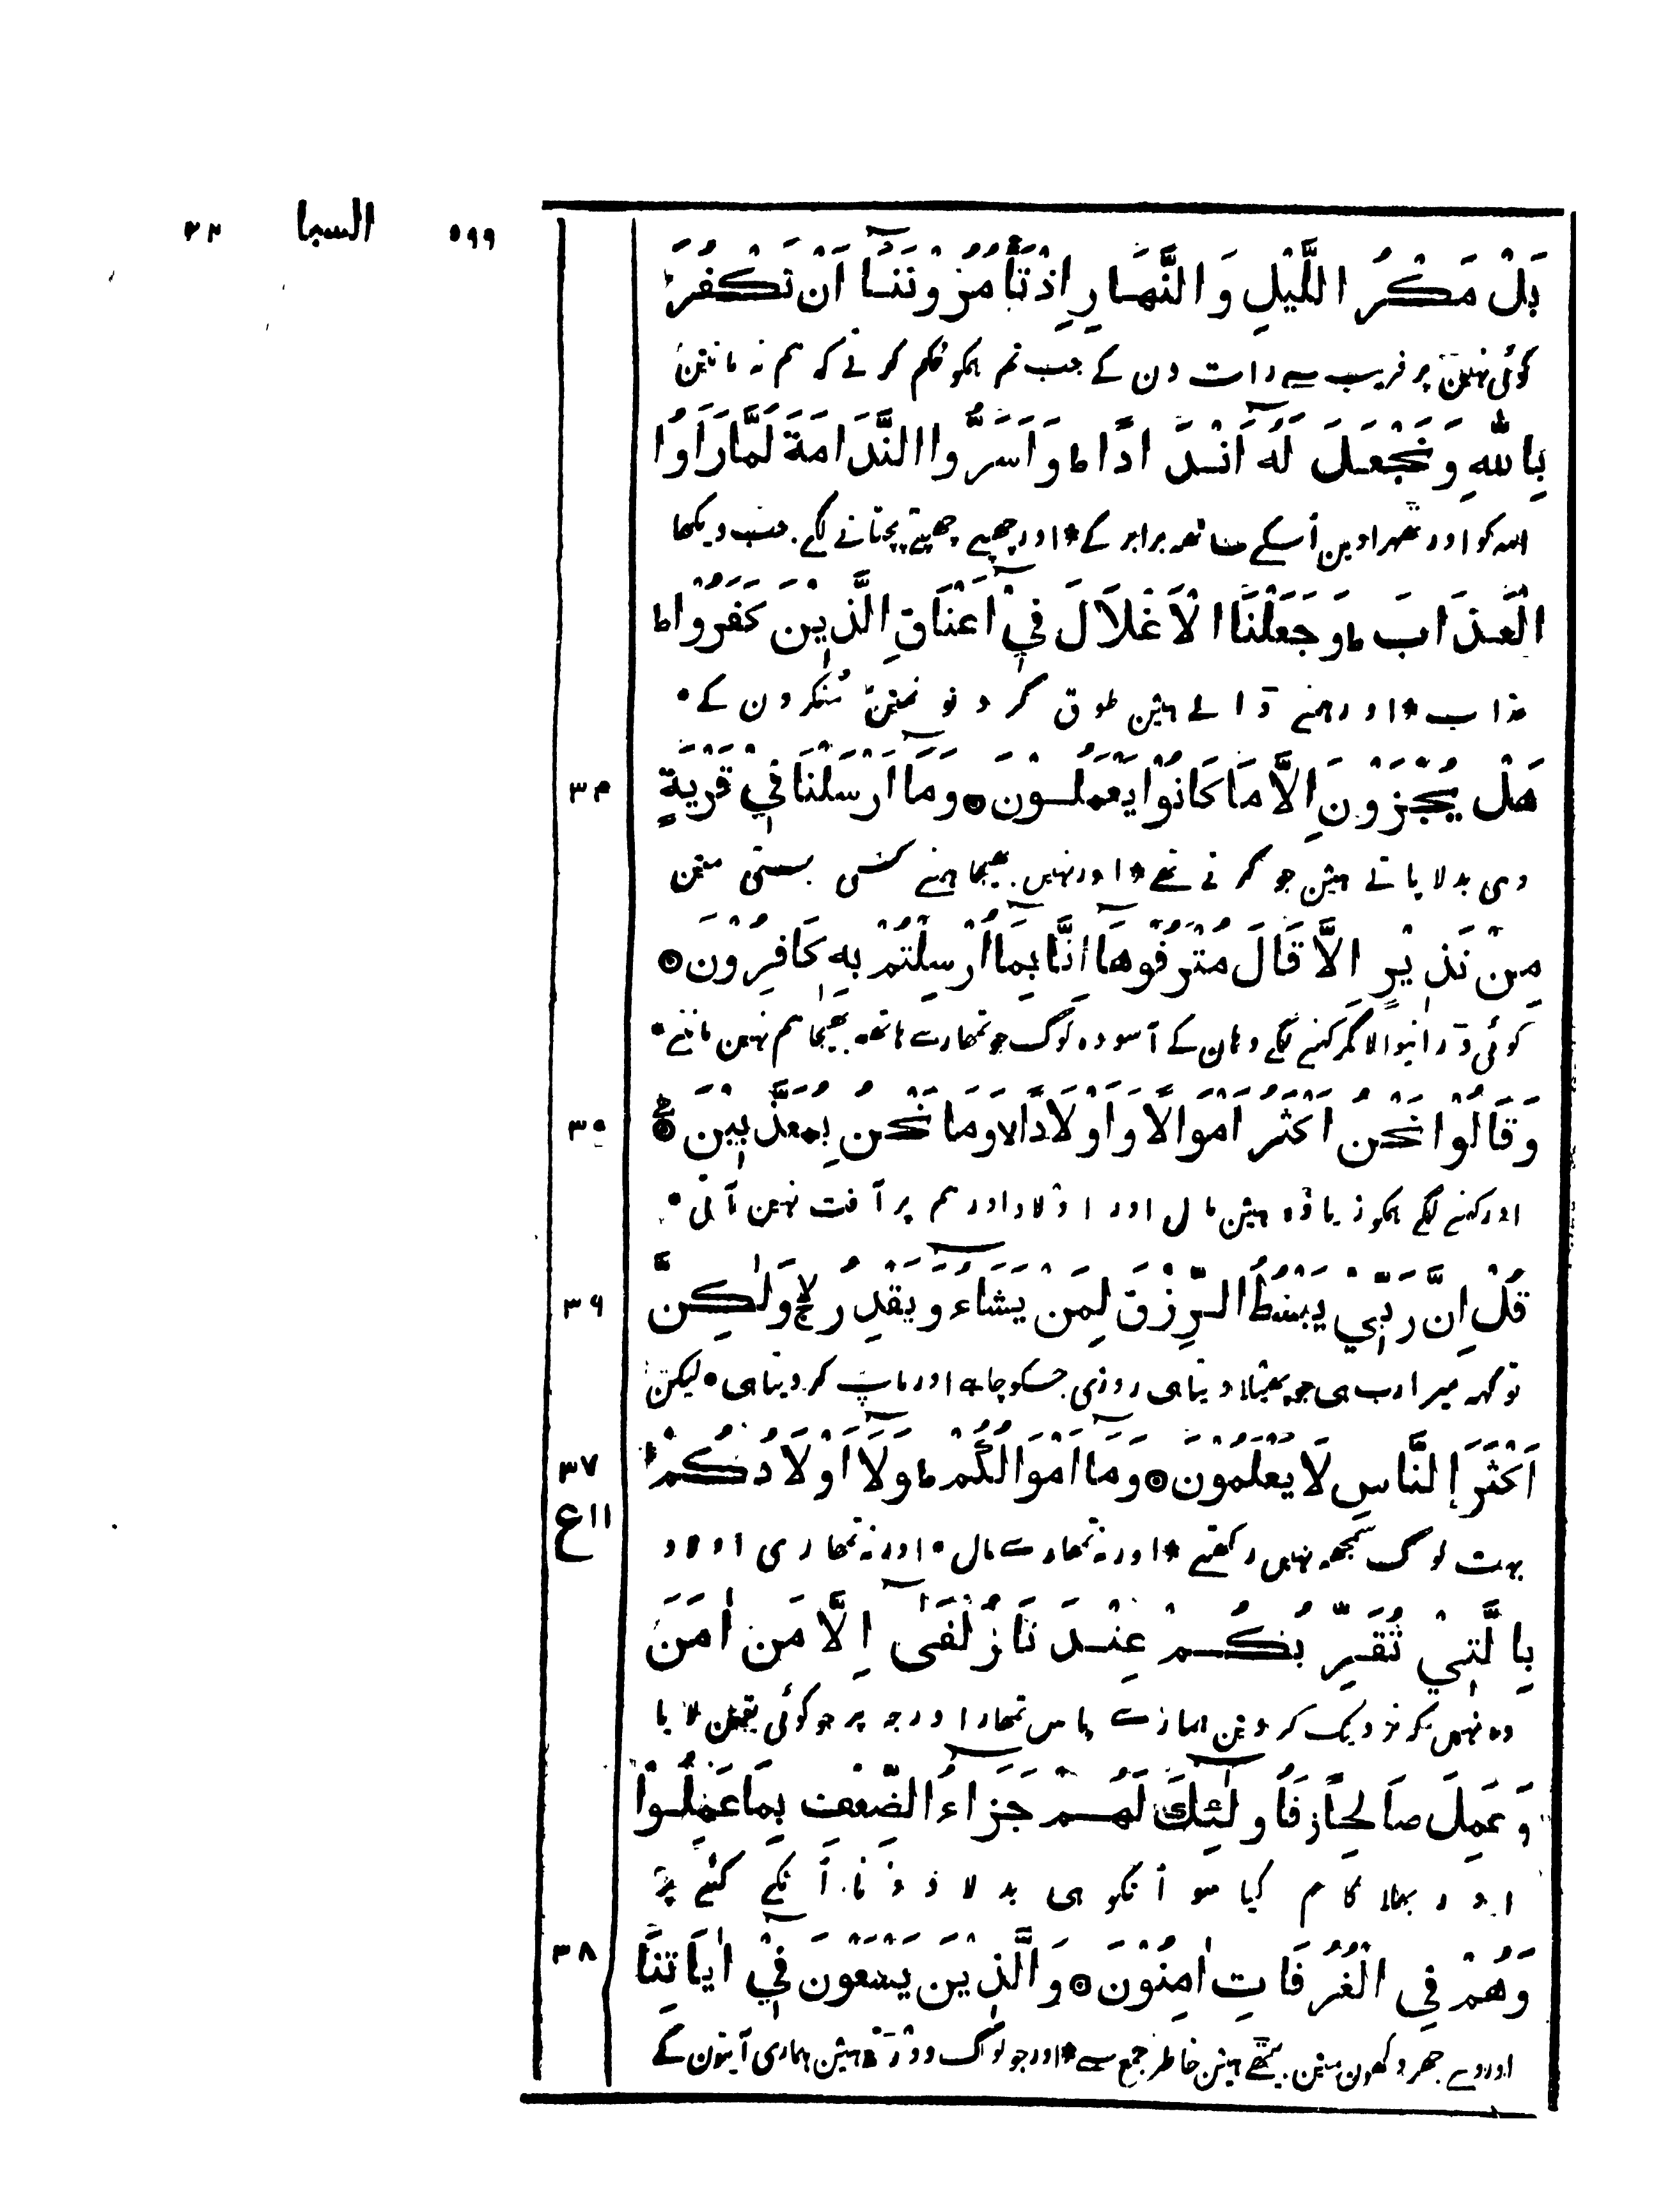 ۵۹۹ السبا ۲۲
بَلْ مَكْرُ اللَّيْلِ وَ النَّهَارِ اِذْ تَأْمُرُوْنَنَآ اَنْ نَكْفُرَ
كوئی نہین پر فریب سے رات دن کے جب تم ہمكو حكم كرتے كہ ہم نہ مانین
بِاللهِ وَ نَجْعَلَ لَهٗٓ اَنْدَادًا ط وَ اَسَرُّوا النَّدَامَةَ لَمَّا رَاَوُا
اللہ كو اور ٹھہراوین اُسكے ساتھہ برابر كے * اور چھپے چھپے پچتانے لگے جب دیكھا
الْعَذَابَ ط وَ جَعَلْنَا الْاَغْلَالَ فِيْٓ اَعْنَاقِ الَّذِيْنَ كَفَرُوْا ط
عذاب * اور ہمنے ڈالے ہین طوق گردنو نمین منكرون كے •
۳۴ هَلْ يُجْزَوْنَ اِلَّا مَا كَانُوْا يَعْمَلُوْنَ ۞ وَمَآ اَرْسَلْنَا فِيْ قَرْيَةٍ
وہی بدلا پاتے ہین جو كرتے تھے * اور نہیں بھیجا ہمنے كسی بستی مین
مِنْ نَذِيْرٍ اِلَّا قَالَ مُتْرَفُوْهَآ اِنَّا بِمَآ اُرْسِلْتُمْ بِهٖ كَافِرُوْنَ ۞
كوئی ڈرانیوالا مگر كہنے لگے وہان كے آسودہ لوگ جو تمہارے ہاتھہ بھیجا ہم نہین مانتے •
۳۵ وَ قَالُوْا نَحْنُ اَكْثَرُ اَمْوَالًا وَ اَوْلَادًا لا وَ مَا نَحْنُ بِمُعَذَّبِيْنَ ۞
اور كہنے لگے ہمكو زیادہ ہین مال اور اولاد اور ہم پر آفت نہین آتی •
۳۶ قُلْ اِنَّ رَبِّيْ يَبْسُطُ الرِّزْقَ لِمَنْ يَشَآءُ وَ يَقْدِرُ وَلٰكِنَّ
تو كہہ میرا رب ہی جو پھیلا دیتا ہی روزی جسكو چاہے اور ماپ كر دیتا ہی • لیكن
۳۷ اَكْثَرَ النَّاسِ لَا يَعْلَمُوْنَ ۞ وَ مَآ اَمْوَالُكُمْ ط وَلَآ اَوْلَادُكُمْ
۱۱ع بہت لوگ سمجھہ نہیں ركھتے * اور نہ تمہارے مال • اور نہ تمہاری اولاد
بِالَّتِيْ تُقَرِّبُكُمْ عِنْدَنَا زُلْفٰىٓ اِلَّا مَن اٰمَنَ
وہ نہیں كہ نزدیك كر دین ہمارے پاس تمہارا درجہ پر جو كوئی یقین لایا
وَ عَمِلَ صَالِحًا ز فَاُولٰٓئِكَ لَهُمْ جَزَآءُ الضِّعْفِ بِمَا عَمِلُوْا
اور بھلا كام كیا سو اُنكو ہی بدلا دونا اُنكے كئے پر
۳۸ وَهُمْ فِي الْغُرُفَاتِ اٰمِنُوْنَ ۞ وَ الَّذِيْنَ يَسْعَوْنَ فِيْٓ اٰيَاتِنَا
اور وے جھروكھون مین بیٹھے ہین خاطر جمع سے * اور جو لوگ دوڑتے ہین ہماری آیتون كے